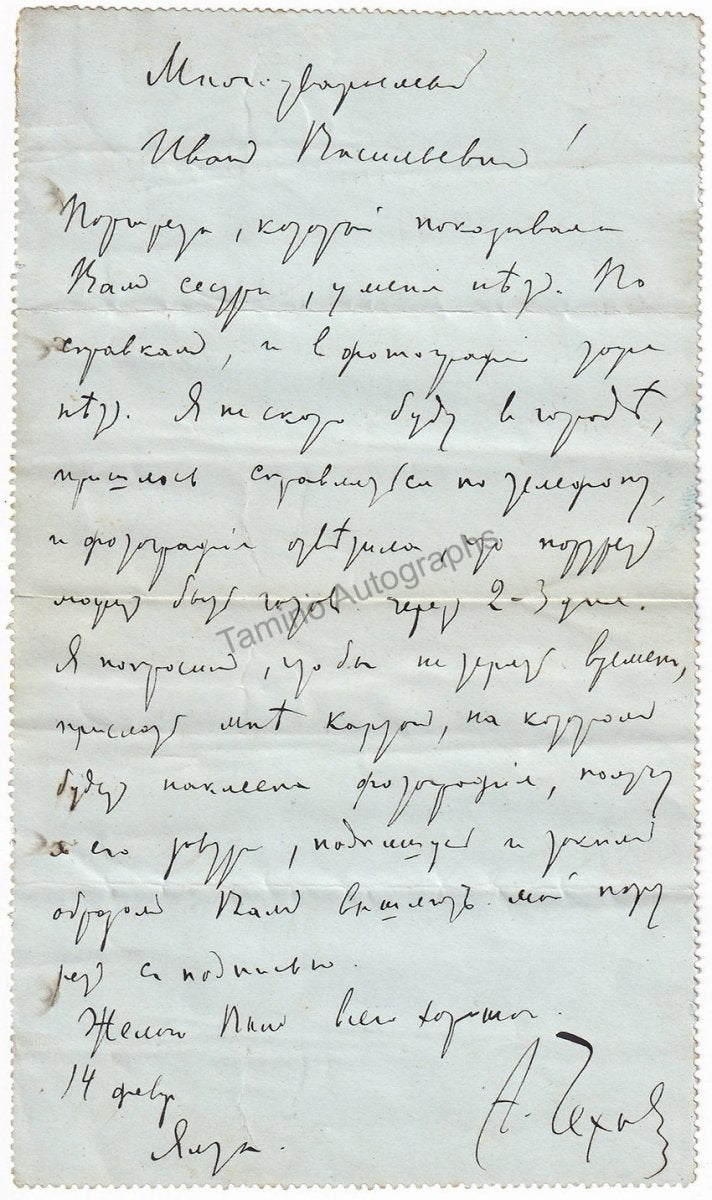 Многоуважаемый
Иван Васильевич!
Портрета, который показывала
Вам сестра, у меня нѣт. По
справкам, и в фотографии тоже
нѣт. Я не скоро буду в городѣ,
пришлось справляться по телефону,
и фотография отвѣтила, что портрет
может быть готов через 2-3 дня.
Я попросил, чтобы не терять времени,
прислать мнѣ картон, на котором
будет наклеена фотография, получу
его завтра, подпишу и таким
образом Вам вышлют мой порт
рет с подписью.
Желаю Вам всего хорошего.
А. Чехов
14 февр
Ялта.
Tamino Autographs